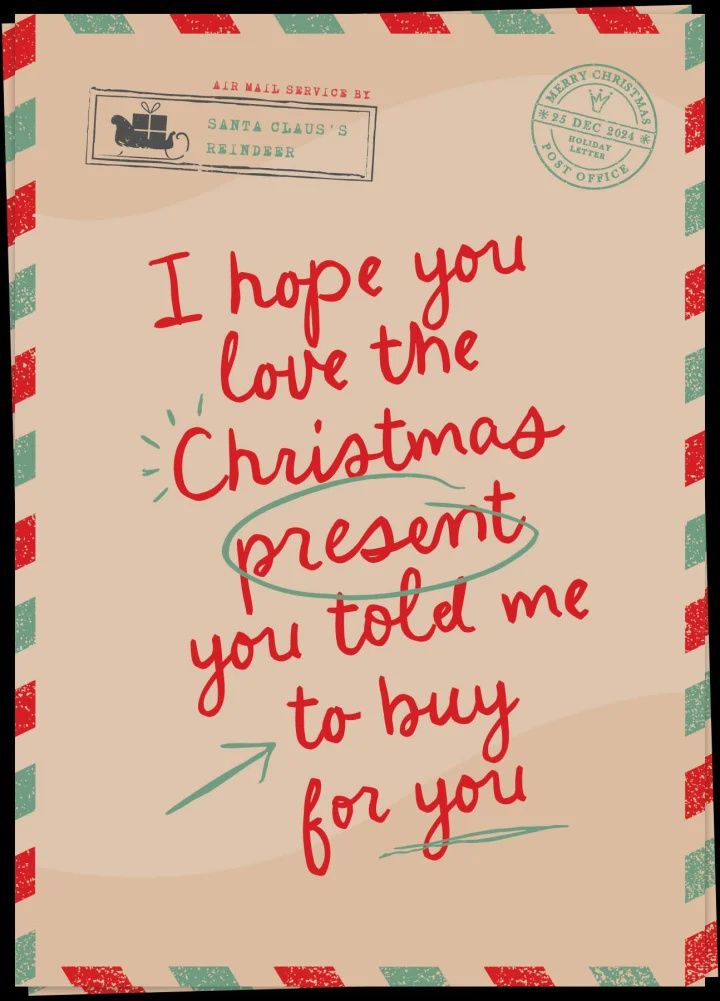 AIR MAIL SERVICE BY
SANTA CLAUS'S
REINDEER
MERRY CHRISTMAS
25 DEC 2024
HOLIDAY
LETTER
POST OFFICE
I hope you
love the
Christmas
present
you told me
to buy
for you